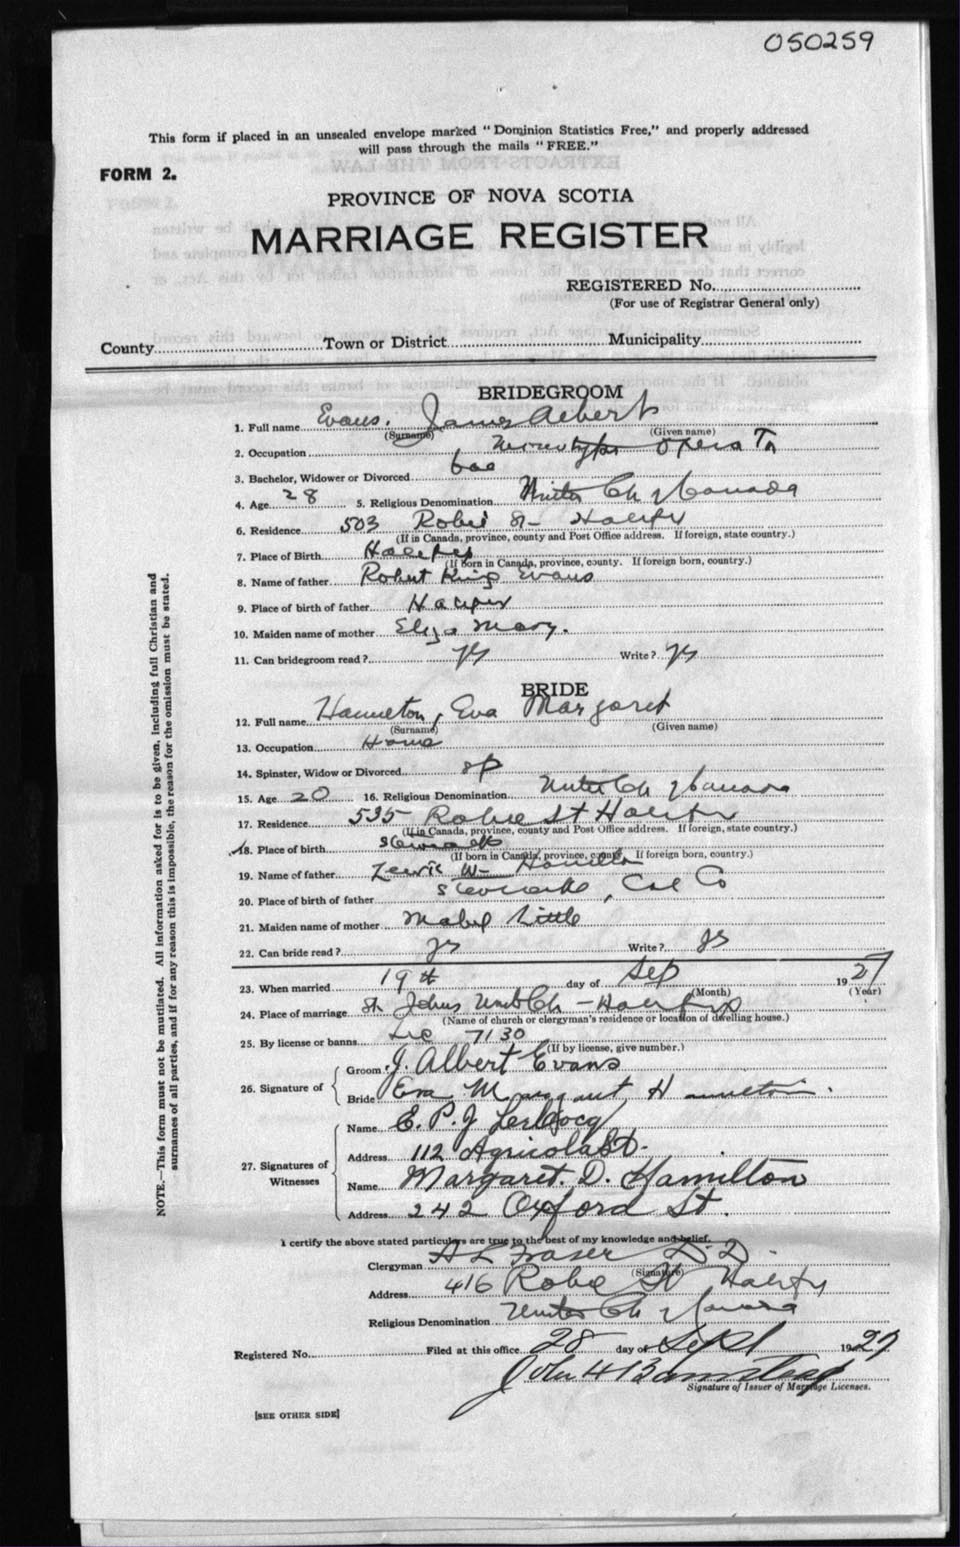 050259
This form if placed in an unsealed envelope marked "Dominion Statistics Free," and properly addressed
will pass through the mails "FREE."
FORM 2.
PROVINCE OF NOVA SCOTIA
MARRIAGE REGISTER
REGISTERED No.
(For use of Registrar General only)
County Town or District Municipality
BRIDEGROOM
1. Full name Evans, James Albert
(Surname) (Given name)
2. Occupation Monotype Operator
3. Bachelor, Widower or Divorced bac
4. Age 28 5. Religious Denomination United Ch of Canada
6. Residence 503 Robie St Halifax
(If in Canada, province, county and Post Office address. If foreign, state country.)
7. Place of Birth Halifax
(If Born in Canada, province, county. If foreign born, country.)
8. Name of father Robert King Evans
9. Place of birth of father Halifax
10. Maiden name of mother Eliza Mary.
11. Can bridegroom read? ys Write? ys
BRIDE
12. Full name Hamilton, Eva Margaret
(Surname) (Given name)
13. Occupation Home
14. Spinster, Widow or Divorced sp
15. Age 20 16. Religious Denomination United Ch of Canada
17. Residence 535 Robie St Halifax
(If in Canada, province, county and Post Office address. If foreign, state country.)
18. Place of birth Stewiacke
(If born in Canada, province, county. If foreign born, country.)
19. Name of father Lewis W Hamilton
20. Place of birth of father Stewiacke, Col Co
21. Maiden name of mother Mabel Little
22. Can bride read? ys Write? ys
23. When married 19th day of Sep 1927
(Month) (Year)
24. Place of marriage St Johns Unit Ch - Halifax
(Name of church or clergyman's residence or location of dwelling house.)
25. By license or banns Lic 7130
(If by license, give number.)
26. Signature of
Groom J. Albert Evans
Bride Eva Margaret Hamilton.
27. Signatures of Witnesses
Name E. P. J.
Address 112 Agricola St.
Name Margaret. D. Hamilton
Address 242 Oxford St.
I certify the above stated particulars are true to the best of my knowledge and belief.
Clergyman A L Fraser D.D.
(Signature)
Address 416 Robie St Halifax
Religious Denomination United Ch of Canada
Registered No. Filed at this office 28 day of Sept 1927
John
Signature of Issuer of Marriage Licenses.
[SEE OTHER SIDE]
NOTE.—This form must not be mutilated. All information asked for is to be given, including full Christian and
surnames of all parties, and if for any reason this is impossible, the reason for the omission must be stated.